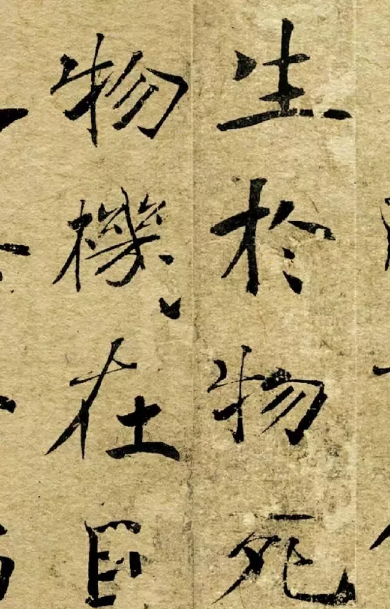 生於物死
物機在目